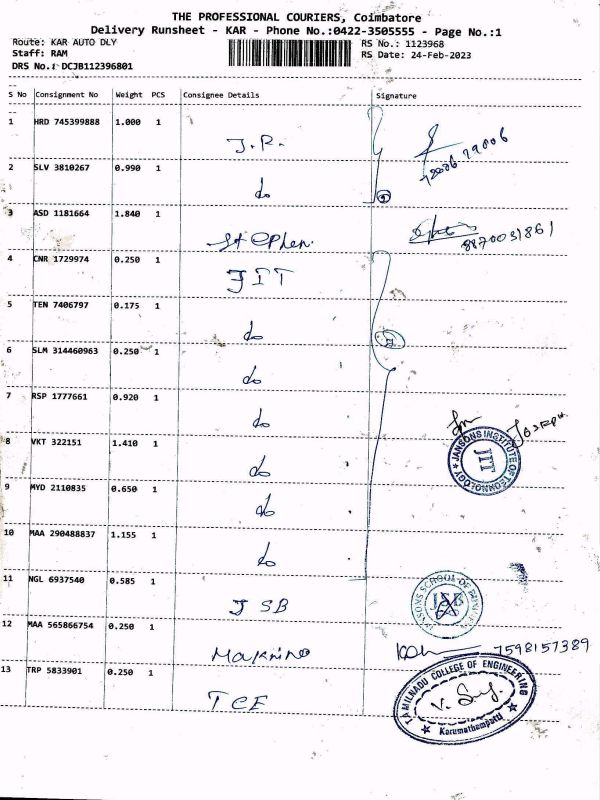 THE PROFESSIONAL COURIERS, Coimbatore
Delivery Runsheet - KAR - Phone No.:0422-3505555 - Page No.:1
Route: KAR AUTO DLY RS No.: 1123968
Staff: RAM RS Date: 24-Feb-2023
DRS No.: DCJB112396801
S No Consignment No Weight PCS Consignee Details Signature
1 HRD 745399888 1.000 1
J.R.
2 SLV 3810267 0.990 1
do
3 ASD 1181664 1.840 1
Stephen. 8870031861
4 CNR 1729974 0.250 1
JIT
5 TEN 7406797 0.175 1
do
6 SLM 314460963 0.250 1
do
7 RSP 1777661 0.920 1
do
JOSEPH
8 VKT 322151 1.410 1
JANSONS INSTITUTE OF TECHNOLOGY
JIT
do
9 MYD 2110835 0.650 1
do
10 MAA 290488837 1.155 1
do
11 NGL 6937540 0.585 1
JANSONS SCHOOL OF BUSINESS
JSB
JSB
12 MAA 565866754 0.250 1
7598157389
13 TRP 5833901 0.250 1
TCE
TAMILNADU COLLEGE OF ENGINEERING
Karumathampatti